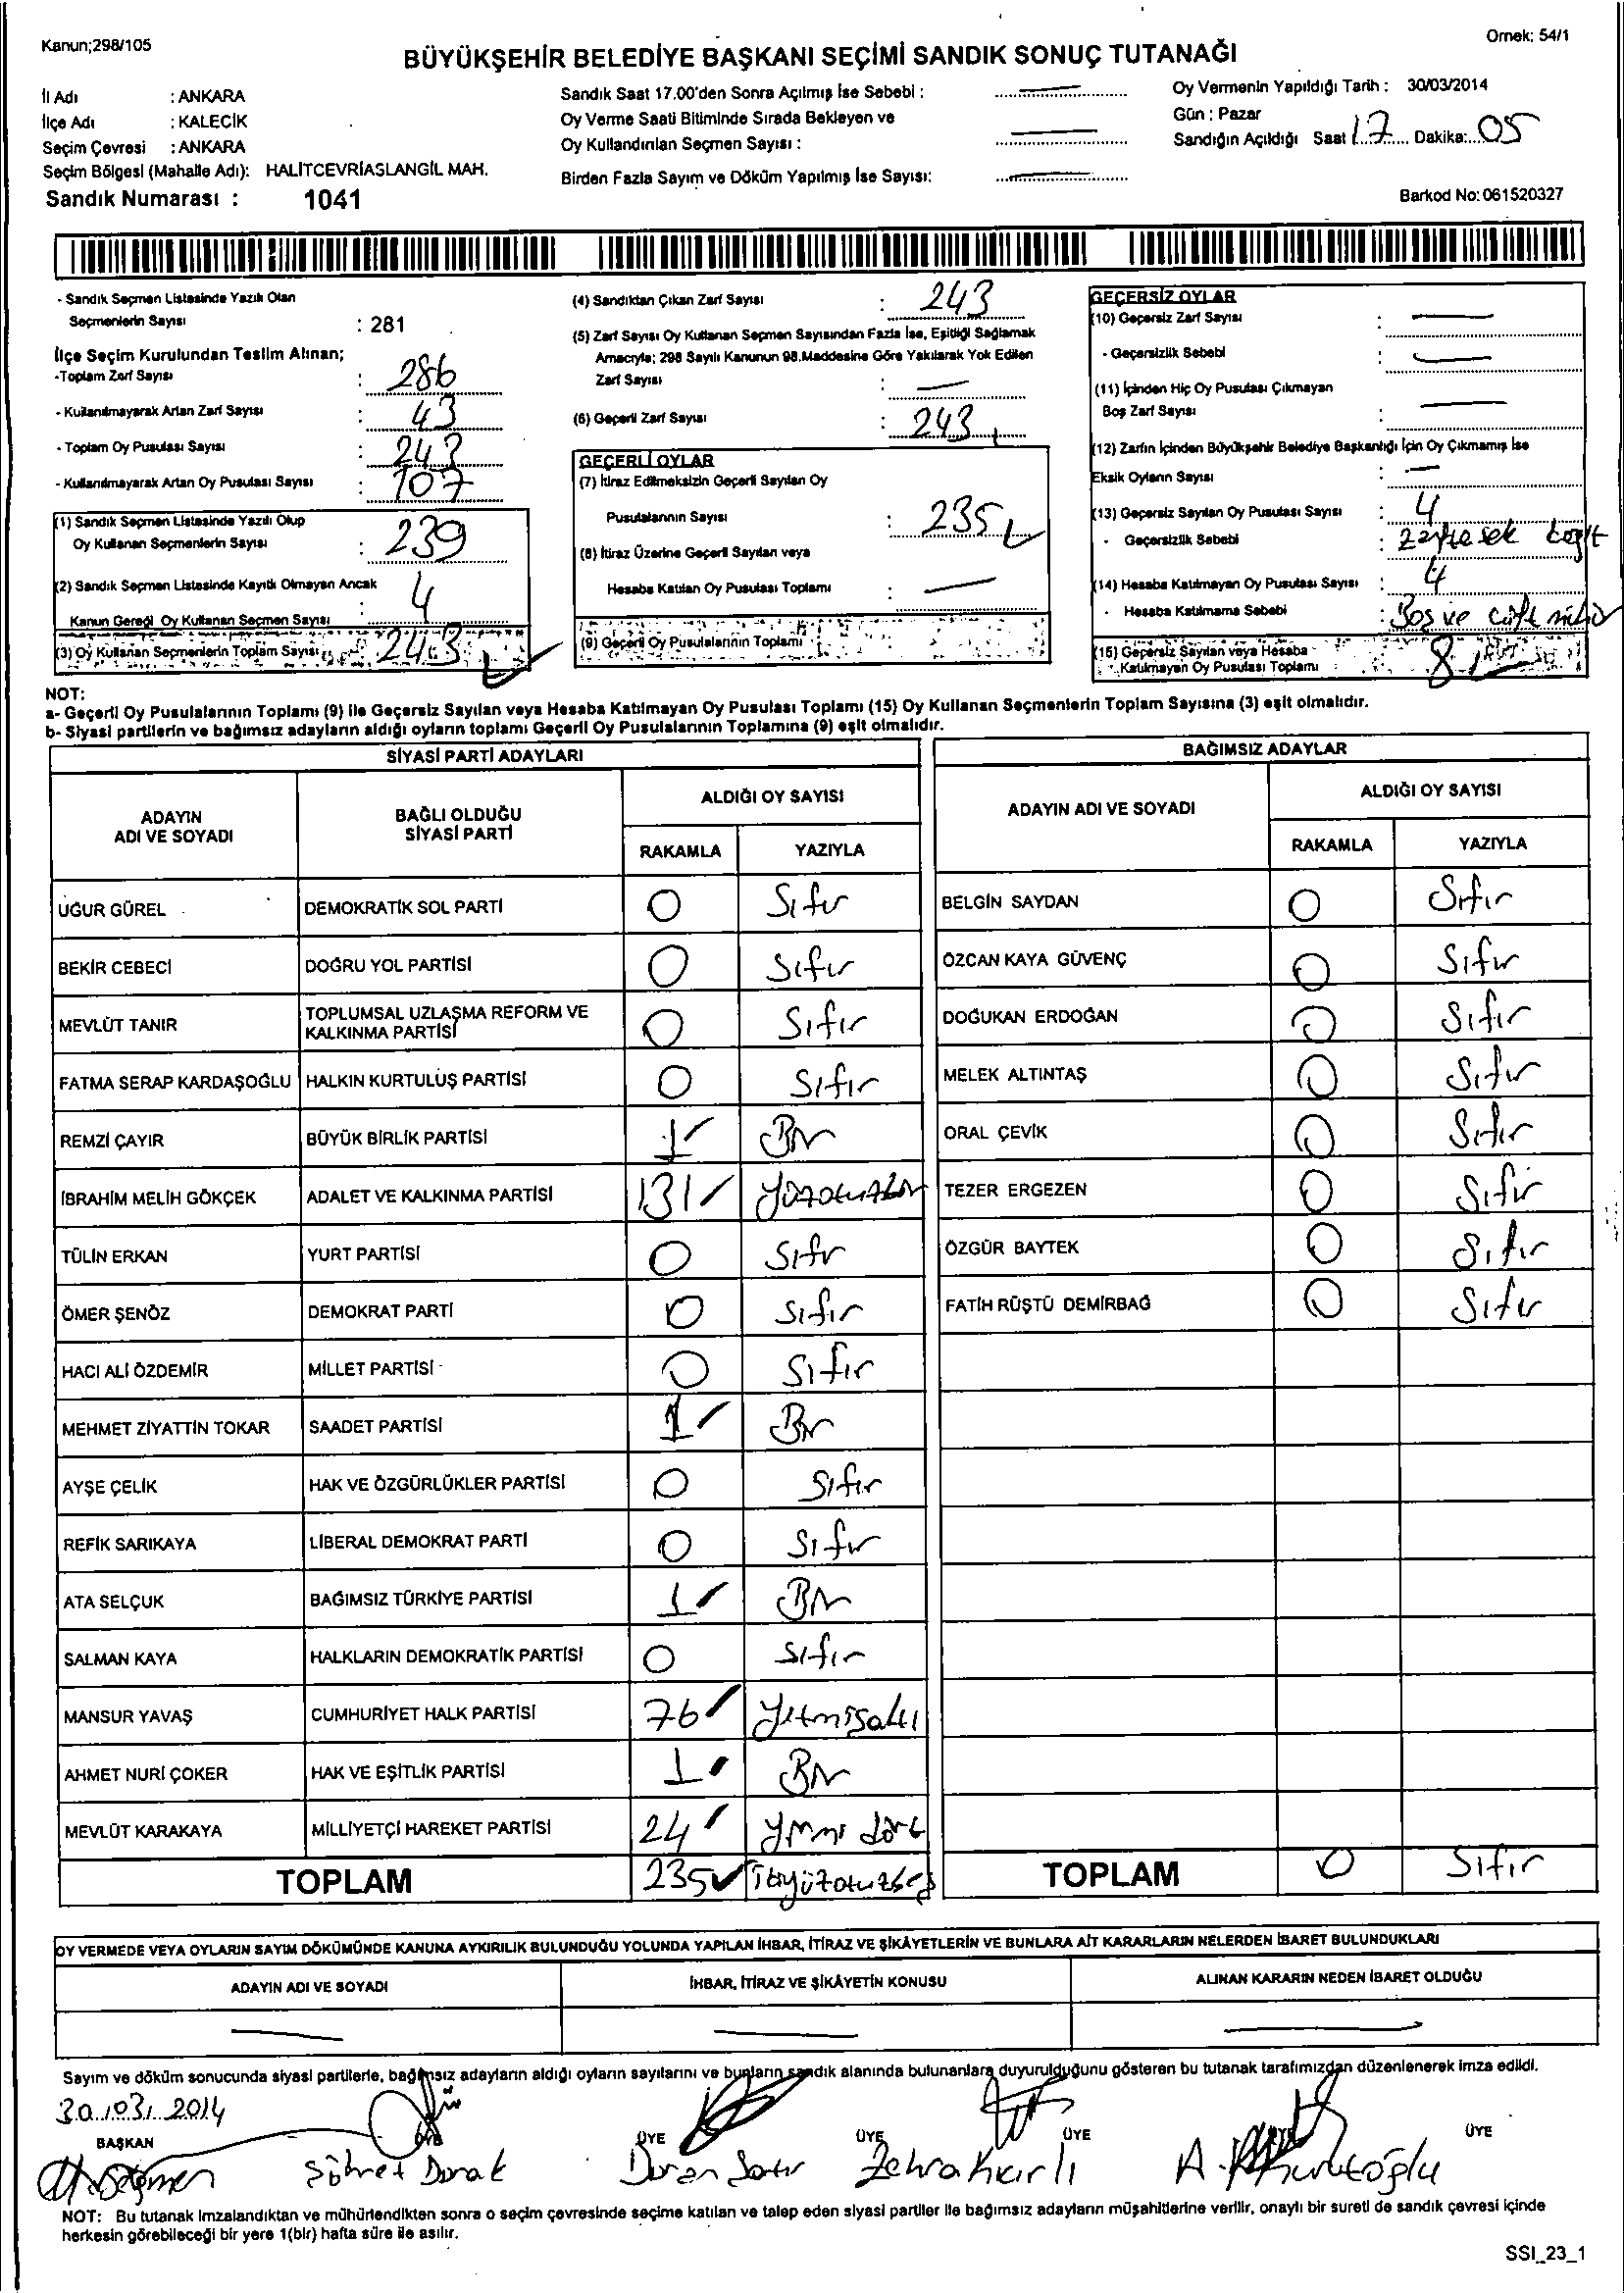 Kanun;298/105
Örnek: 54/1
BÜYÜKŞEHİR BELEDİYE BAŞKANI SEÇİMİ SANDIK SONUÇ TUTANAĞI
İl Adı : ANKARA
İlçe Adı : KALECİK
Seçim Çevresi : ANKARA
Seçim Bölgesi (Mahalle Adı): HALİTCEVRİASLANGİL MAH.
Sandık Numarası : 1041
Sandık Saat 17.00'den Sonra Açılmış İse Sebebi :
Oy Verme Saati Bitiminde Sırada Bekleyen ve
Oy Kullandırılan Seçmen Sayısı :
Birden Fazla Sayım ve Döküm Yapılmış İse Sayısı:
Oy Vermenin Yapıldığı Tarih : 30/03/2014
Gün : Pazar
Sandığın Açıldığı Saat 17 Dakika: 05
Barkod No: 061520327
- Sandık Seçmen Listesinde Yazılı Olan
Seçmenlerin Sayısı : 281
İlçe Seçim Kurulundan Teslim Alınan;
-Toplam Zarf Sayısı : 286
- Kullanılmayarak Artan Zarf Sayısı : 43
- Toplam Oy Pusulası Sayısı : 243
- Kullanılmayarak Artan Oy Pusulası Sayısı : 107
(1) Sandık Seçmen Listesinde Yazılı Olup
Oy Kullanan Seçmenlerin Sayısı : 239
(2) Sandık Seçmen Listesinde Kayıtlı Olmayan Ancak
Kanun Gereği Oy Kullanan Seçmen Sayısı : 4
(3) Oy Kullanan Seçmenlerin Toplam Sayısı : 243
(4) Sandıktan Çıkan Zarf Sayısı : 243
(5) Zarf Sayısı Oy Kullanan Seçmen Sayısından Fazla İse, Eşitliği Sağlamak
Amacıyla; 298 Sayılı Kanunun 98.Maddesine Göre Yakılarak Yok Edilen
Zarf Sayısı :
(6) Geçerli Zarf Sayısı : 243
GEÇERLİ OYLAR
(7) İtiraz Edilmeksizin Geçerli Sayılan Oy
Pusulalarının Sayısı : 235
(8) İtiraz Üzerine Geçerli Sayılan veya
Hesaba Katılan Oy Pusulası Toplamı :
(9) Geçerli Oy Pusulalarının Toplamı :
GEÇERSİZ OYLAR
(10) Geçersiz Zarf Sayısı :
- Geçersizlik Sebebi :
(11) İçinden Hiç Oy Pusulası Çıkmayan
Boş Zarf Sayısı :
(12) Zarfın İçinden Büyükşehir Belediye Başkanlığı İçin Oy Çıkmamış İse
Eksik Oyların Sayısı :
(13) Geçersiz Sayılan Oy Pusulası Sayısı : 4
- Geçersizlik Sebebi :
(14) Hesaba Katılmayan Oy Pusulası Sayısı : 4
- Hesaba Katılmama Sebebi : Boş ve çift mühür
(15) Geçersiz Sayılan veya Hesaba
Katılmayan Oy Pusulası Toplamı : 8
NOT:
a- Geçerli Oy Pusulalarının Toplamı (9) ile Geçersiz Sayılan veya Hesaba Katılmayan Oy Pusulası Toplamı (15) Oy Kullanan Seçmenlerin Toplam Sayısına (3) eşit olmalıdır.
b- Siyasi partilerin ve bağımsız adayların aldığı oyların toplamı Geçerli Oy Pusulalarının Toplamına (9) eşit olmalıdır.
SİYASİ PARTİ ADAYLARI
ADAYIN ADI VE SOYADI BAĞLI OLDUĞU SİYASİ PARTİ ALDIĞI OY SAYISI
RAKAMLA YAZIYLA
UĞUR GÜREL DEMOKRATİK SOL PARTİ 0 Sıfır
BEKİR CEBECİ DOĞRU YOL PARTİSİ 0 Sıfır
MEVLÜT TANIR TOPLUMSAL UZLAŞMA REFORM VE KALKINMA PARTİSİ 0 Sıfır
FATMA SERAP KARDAŞOĞLU HALKIN KURTULUŞ PARTİSİ 0 Sıfır
REMZİ ÇAYIR BÜYÜK BİRLİK PARTİSİ 1 Bir
İBRAHİM MELİH GÖKÇEK ADALET VE KALKINMA PARTİSİ 131 yüzotuzbir
TÜLİN ERKAN YURT PARTİSİ 0 Sıfır
ÖMER ŞENÖZ DEMOKRAT PARTİ 0 Sıfır
HACI ALİ ÖZDEMİR MİLLET PARTİSİ 0 Sıfır
MEHMET ZİYATTİN TOKAR SAADET PARTİSİ 1 Bir
AYŞE ÇELİK HAK VE ÖZGÜRLÜKLER PARTİSİ 0 Sıfır
REFİK SARIKAYA LİBERAL DEMOKRAT PARTİ 0 Sıfır
ATA SELÇUK BAĞIMSIZ TÜRKİYE PARTİSİ 1 Bir
SALMAN KAYA HALKLARIN DEMOKRATİK PARTİSİ 0 Sıfır
MANSUR YAVAŞ CUMHURİYET HALK PARTİSİ 76 yetmişaltı
AHMET NURİ ÇOKER HAK VE EŞİTLİK PARTİSİ 1 Bir
MEVLÜT KARAKAYA MİLLİYETÇİ HAREKET PARTİSİ 24 yirmi dört
TOPLAM 235 İkiyüzotuzbeş
BAĞIMSIZ ADAYLAR
ADAYIN ADI VE SOYADI ALDIĞI OY SAYISI
RAKAMLA YAZIYLA
BELGİN SAYDAN 0 Sıfır
ÖZCAN KAYA GÜVENÇ 0 Sıfır
DOĞUKAN ERDOĞAN 0 Sıfır
MELEK ALTINTAŞ 0 Sıfır
ORAL ÇEVİK 0 Sıfır
TEZER ERGEZEN 0 Sıfır
ÖZGÜR BAYTEK 0 Sıfır
FATİH RÜŞTÜ DEMİRBAĞ 0 Sıfır
TOPLAM 0 Sıfır
OY VERMEDE VEYA OYLARIN SAYIM DÖKÜMÜNDE KANUNA AYKIRILIK BULUNDUĞU YOLUNDA YAPILAN İHBAR, İTİRAZ VE ŞİKÂYETLERİN VE BUNLARA AİT KARARLARIN NELERDEN İBARET BULUNDUKLARI
ADAYIN ADI VE SOYADI İHBAR, İTİRAZ VE ŞİKÂYETİN KONUSU ALINAN KARARIN NEDEN İBARET OLDUĞU
Sayım ve döküm sonucunda siyasi partilerle, bağımsız adayların aldığı oyların sayılarını ve bunların sandık alanında bulunanlara duyurulduğunu gösteren bu tutanak tarafımızdan düzenlenerek imza edildi.
30/03/2014
BAŞKAN ÜYE ÜYE ÜYE ÜYE ÜYE
Şöhret Durak Duran Zehra
NOT: Bu tutanak imzalandıktan ve mühürlendikten sonra o seçim çevresinde seçime katılan ve talep eden siyasi partiler ile bağımsız adayların müşahitlerine verilir, onaylı bir sureti de sandık çevresi içinde
herkesin görebileceği bir yere 1(bir) hafta süre ile asılır.
SSI_23_1